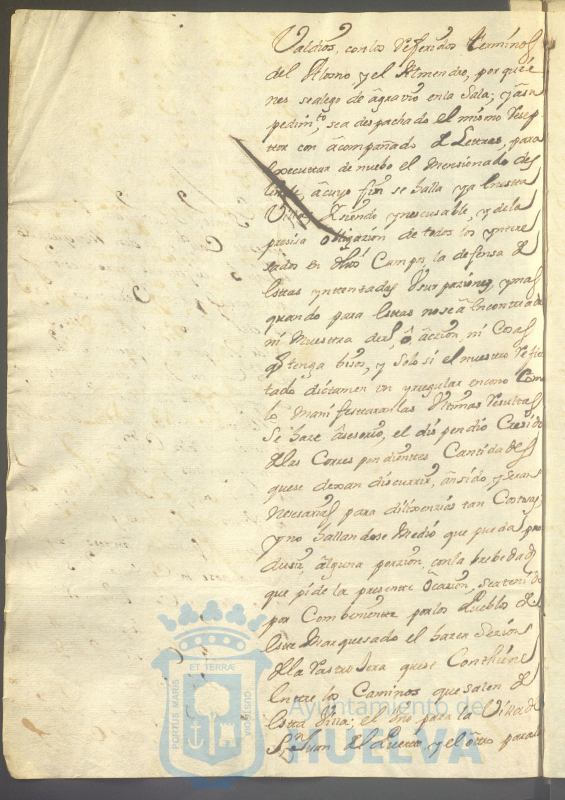 Valdios, con los Refferidos terminos
del Alosno y el Almendro, por quie
nes sealego de agravio en la Sala; y a su
pedim.to, sea despachado el mismo Resep
tor con acompañado de Letras, para
executtar de nuebo el Mensionado des
linde, a cuyo fin se halla ya en esta
Villa; Y siendo ynescusable, y de la
presisa obligazion de todos los yntere
sados en dhô Campo, la defensa de
estas yntentadas Usurpaziones, y mas
quando para estas no se a encontrado
ni muestra dero, ô accion, ni Cosa
q tenga bisos, y solo si el nuestro
tado dictamen un yrregular encono Como
lo manifiestan las Ultimas Resultas
Se haze Asesorio, el dispendio Cresido
de las Correspondientes Cantidades
que se dexan discurrir, an sido y seran
Nesesarias para dilixensias tan Costosas
y no hallandose Medio que pueda pro
dusir, alguna porzion, con la brebedad
que pide la presente Ocasion, se a tenido
por Combeniente por los Pueblos de
este Marquesado el hazer Sesion
de la Rastrojera que se Conthiene
entre los Caminos que salen de
esta Villa; el uno para la Villa de
S.n Juan del Puerto y el otro para la
ET TERRÆ
PORTUS MARIS
CUSTODIA
Ayuntamiento de
HUELVA